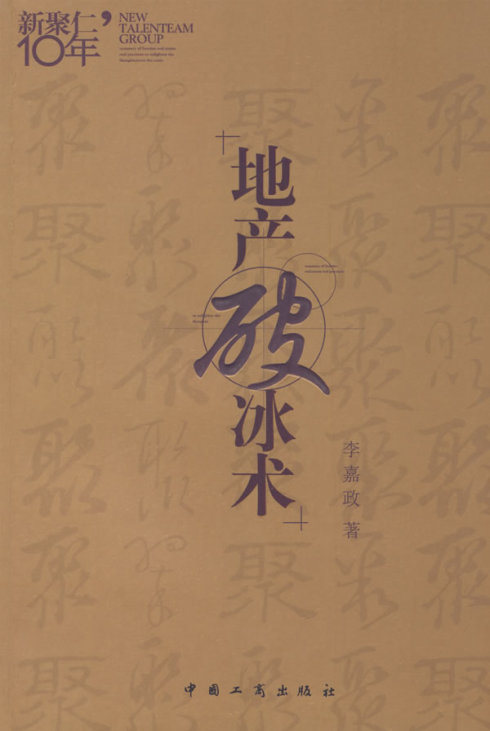 新聚仁
10年’
NEW
TALENTEAM
GROUP
地产破冰术
李嘉政 著
中国工商出版社